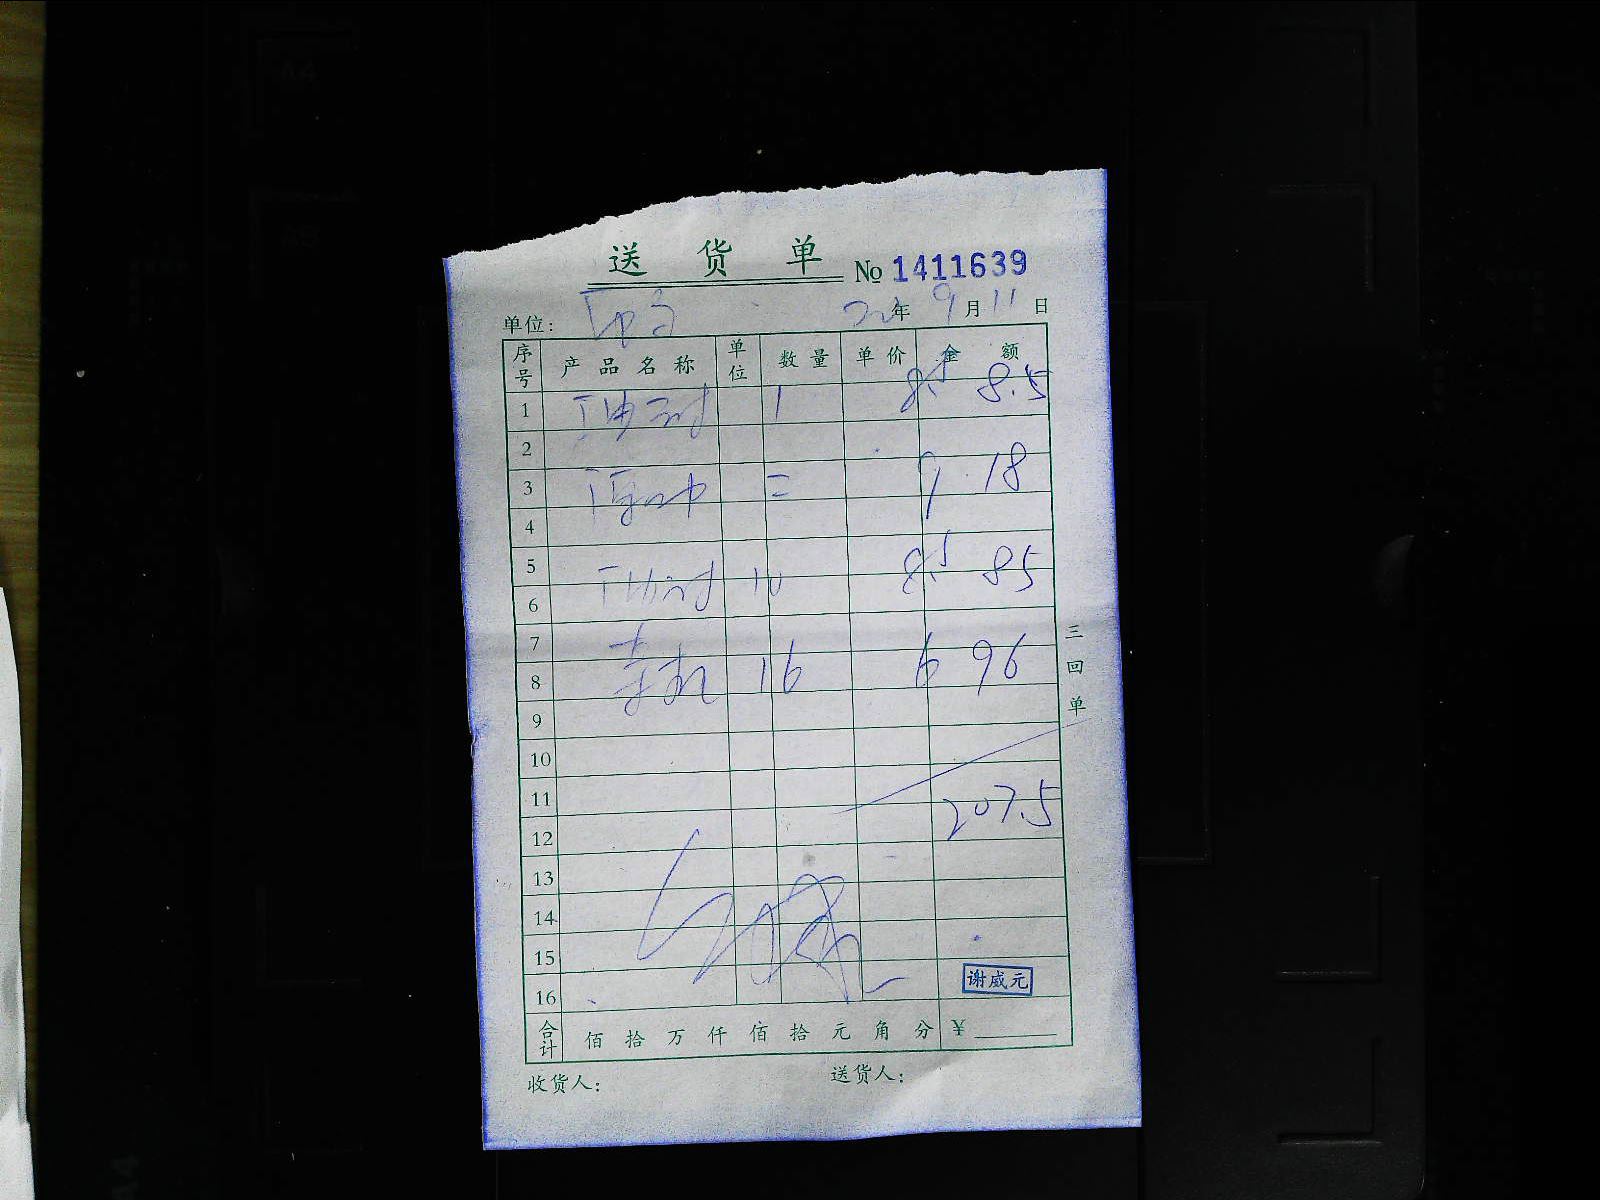 送货单 No 1411639
单位: 22年 9月 11日
序号 产品名称 单位 数量 单价 金额
1 1 8.5 8.5
2
3 二 9 18
4
5 10 8.5 85
6
7
8 16 6 96
9
10
11
12 207.5
13
14
15
16 谢威元
合计 佰 拾 万 仟 佰 拾 元 角 分 ¥
收货人: 送货人:
三回单